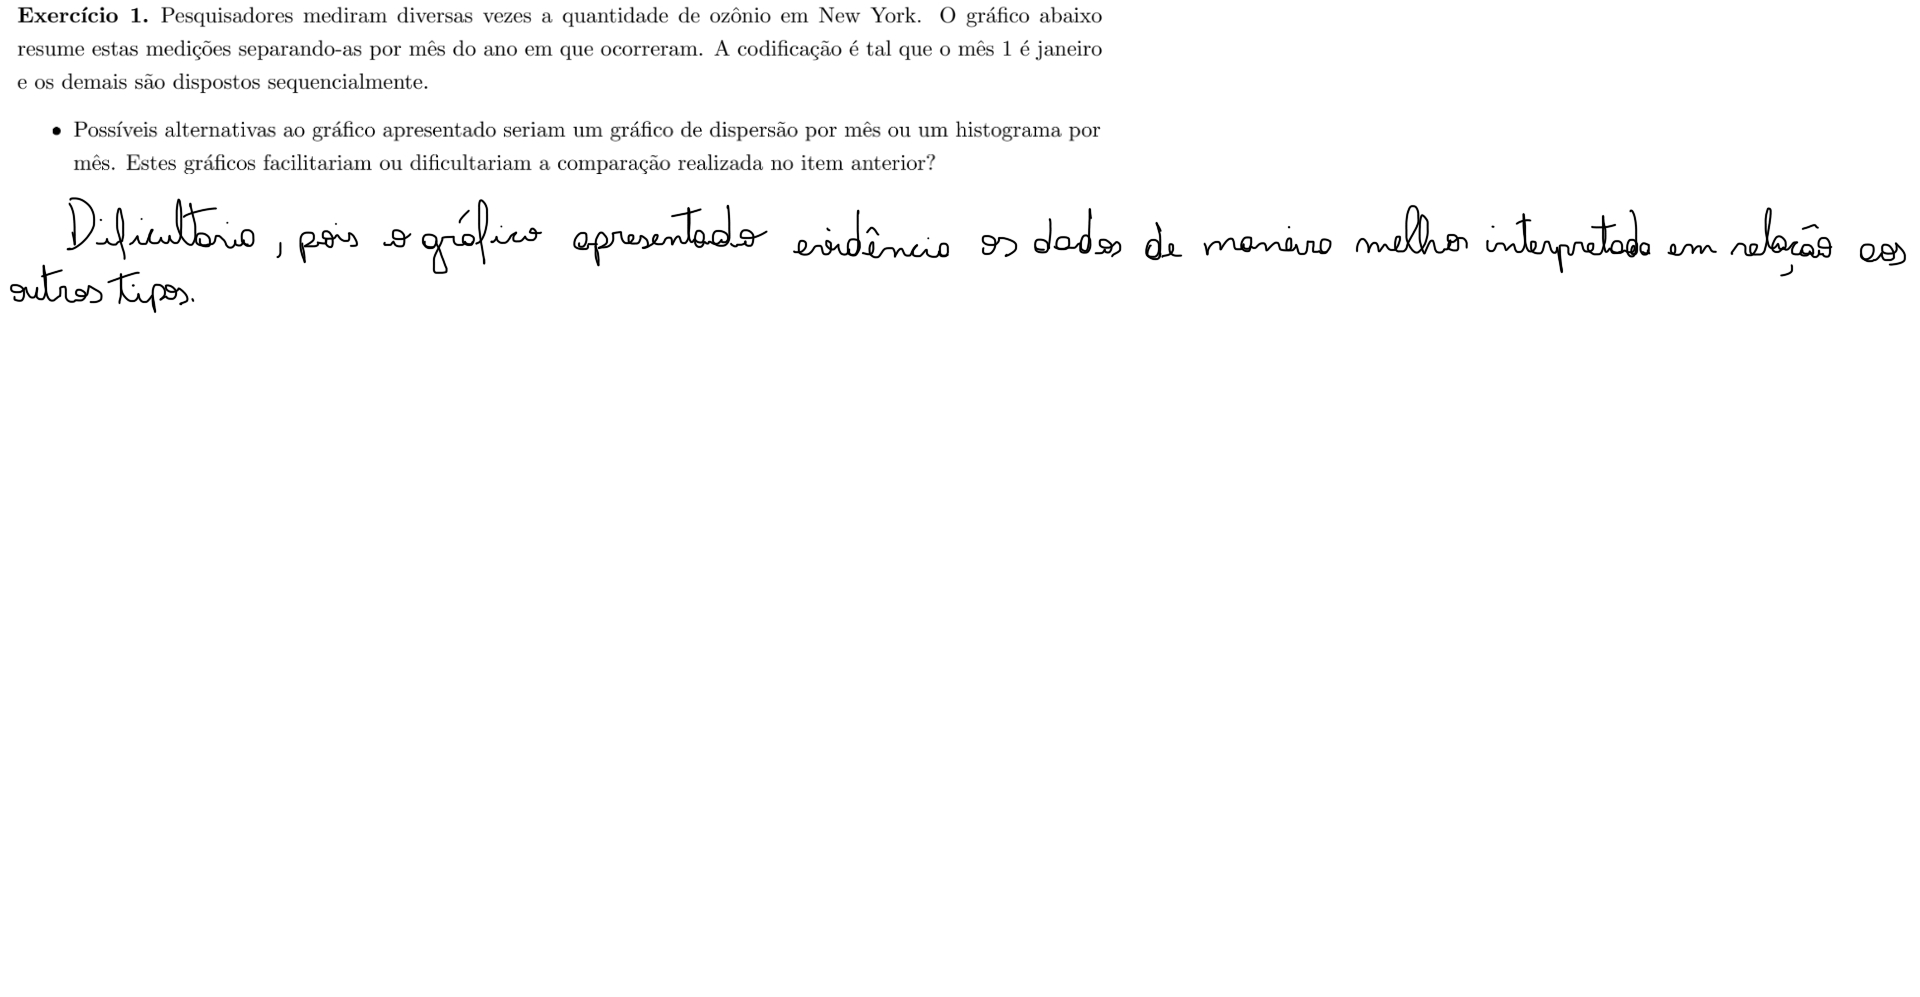 Exercício 1. Pesquisadores mediram diversas vezes a quantidade de ozônio em New York. O gráfico abaixo
resume estas medições separando-as por mês do ano em que ocorreram. A codificação é tal que o mês 1 é janeiro
e os demais são dispostos sequencialmente.
• Possíveis alternativas ao gráfico apresentado seriam um gráfico de dispersão por mês ou um histograma por
mês. Estes gráficos facilitariam ou dificultariam a comparação realizada no item anterior?
Dificultaria, pois o gráfico apresentado evidência os dados de maneira melhor interpretada em relação aos
outros tipos.